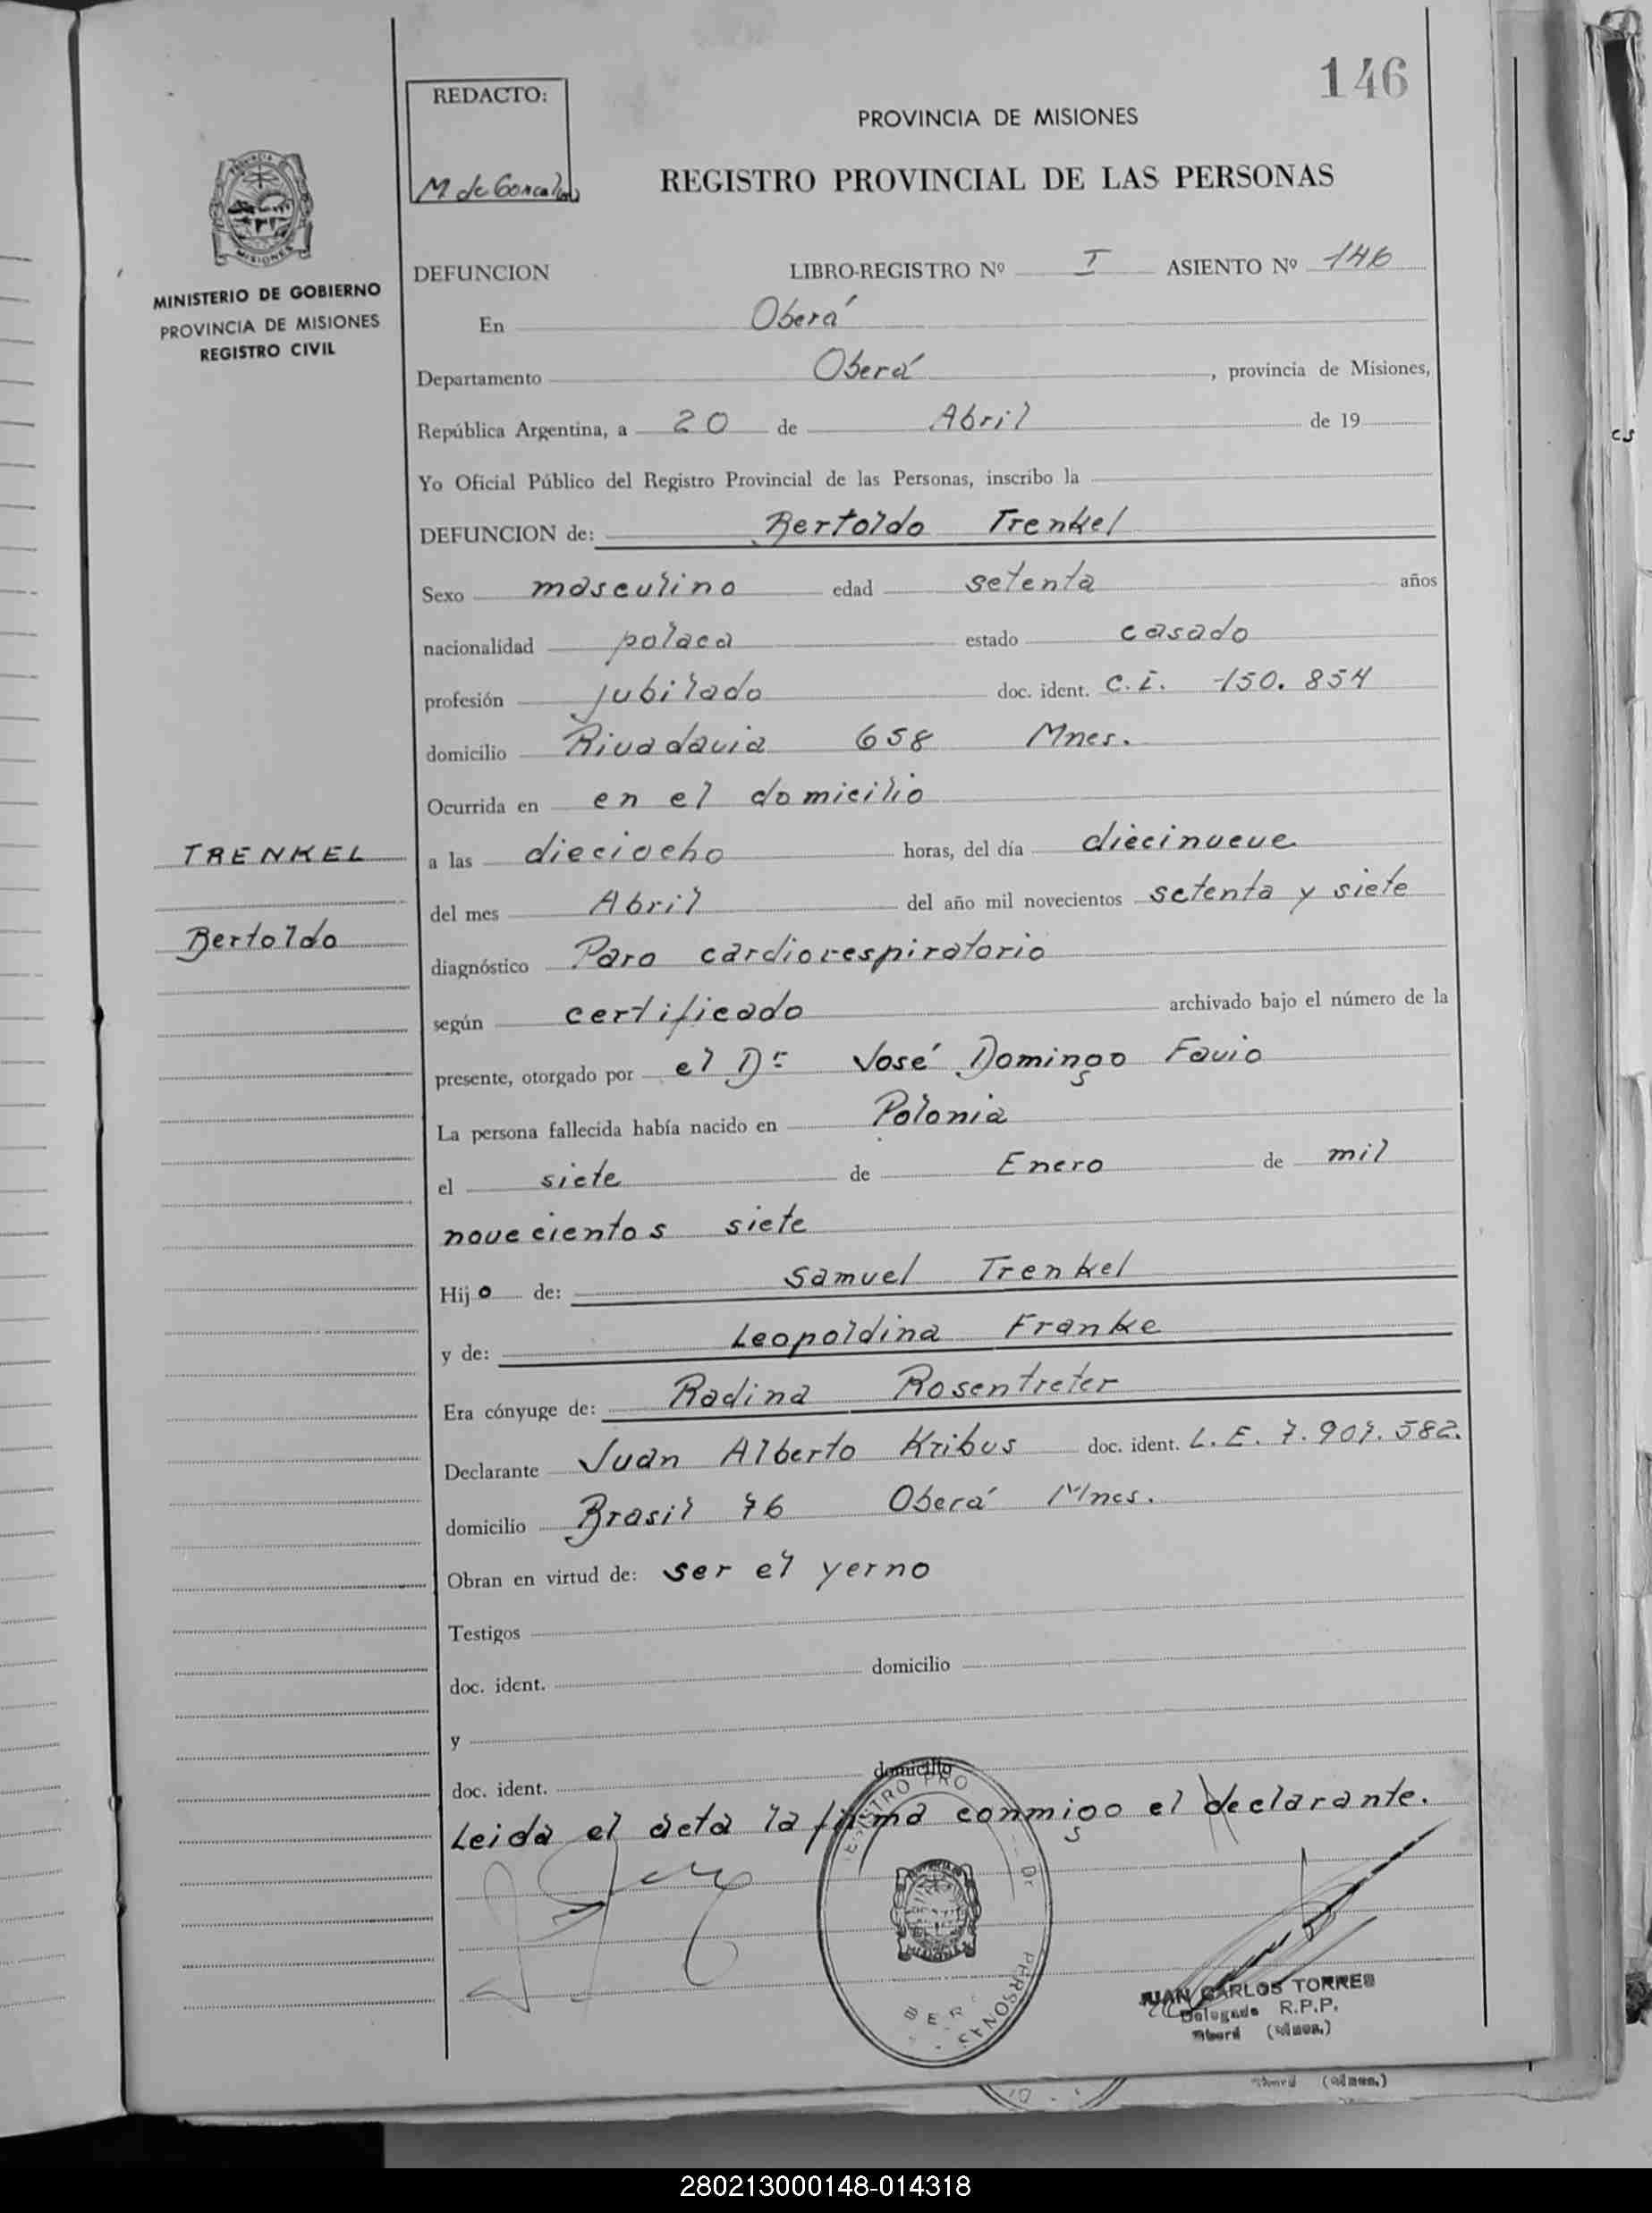 146
REDACTO:
PROVINCIA DE MISIONES
REGISTRO PROVINCIAL DE LAS PERSONAS
MINISTERIO DE GOBIERNO
PROVINCIA DE MISIONES
REGISTRO CIVIL
DEFUNCION LIBRO-REGISTRO Nº I ASIENTO Nº 146
En Oberá
Departamento Oberá, provincia de Misiones,
República Argentina, a 20 de Abril de 19
Yo Oficial Público del Registro Provincial de las Personas, inscribo la
DEFUNCION de: Bertoldo Trenkel
Sexo masculino edad setenta años
nacionalidad polaca estado casado
profesión jubilado doc. ident. C.I. 150.854
domicilio Rivadavia 658 Mnes.
Ocurrida en en el domicilio
TRENKEL
Bertoldo
a las dieciocho horas, del día diecinueve
del mes Abril del año mil novecientos setenta y siete
diagnóstico Paro cardiorespiratorio
según certificado archivado bajo el número de la
presente, otorgado por el Dr José Domingo Favio
La persona fallecida había nacido en Polonia
el siete de Enero de mil
novecientos siete
Hijo de: Samuel Trenkel
y de: Leopoldina Franke
Era cónyuge de: Radina Rosentreter
Declarante Juan Alberto Kribus doc. ident. L.E. 7.907.582.
domicilio Brasil 76 Oberá Mnes.
Obran en virtud de: ser el yerno
Testigos
doc. ident. domicilio
y
doc. ident. domicilio
Leida el acta la firma conmigo el declarante.
JUAN CARLOS TORRES
Delegado R.P.P.
280213000148-014318